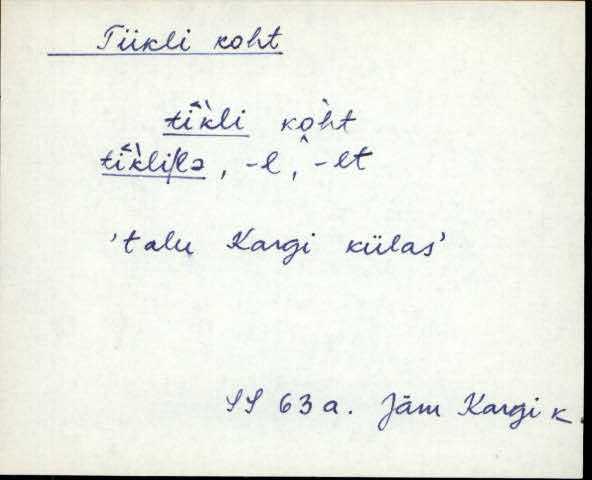 Tiikli koht
tì̭kli kòht
tì̭kli/lə, -l, -lt
'talu Kargi külas'
SS 63a. Jäm Kargi k.